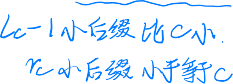 Lc-1 小后缀比 C 小
rc 小后缀 小于等于 C.